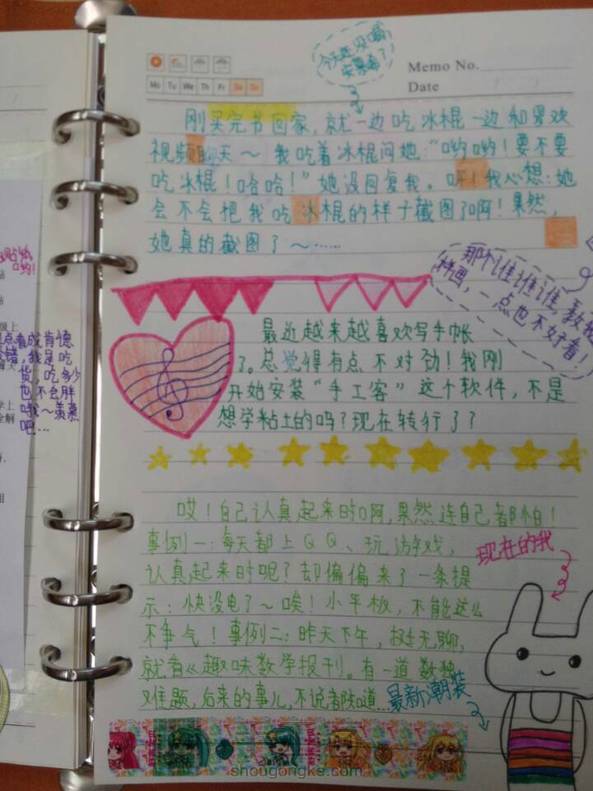 Memo No.
Date
Mo Tu We Th Fr Sa Su
刚买完书回家，就一边吃冰棍一边和男欢
视频聊天～我吃着冰棍问她："哟哟！要不要
吃冰棍！哈哈！"她没回复我。吓！我心想：她
会不会把我吃冰棍的样子截图了啊！果然，
她真的截图了～……
那个谁谁谁，教我
样画，一点也不好看！
最近越来越喜欢写手帐
了。总觉得有点不对劲！我刚
开始安装"手工客"这个软件，不是
想学粘土的吗？现在转行了？
哎！自己认真起来时啊，果然连自己都怕！
事例一：每天都上QQ、玩游戏，
认真起来时呢？却偏偏来了一条提
示：快没电了～唉！小平板，不能这么
不争气！事例二：昨天下午，超无聊，
就看《趣味数学报刊。有一道数独
难题，后来的事儿，不说都知道…
现在的我
最新潮装
点看成肯德
我是吃
货，吃多少
也不会胖
哦～羡慕
吧…
shougongke.com